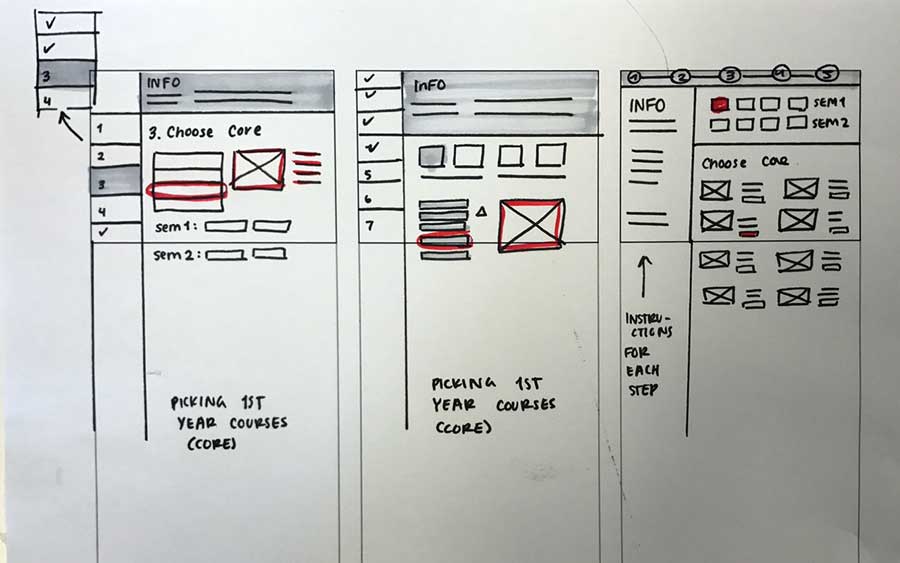 3
4
INFO
1
2
3
4
3. Choose Core
sem 1:
sem 2:
PICKING 1ST
YEAR COURSES
(CORE)
InFO
5
6
7
PICKING 1ST
YEAR COURSES
(CORE)
1 2 3 4 5
INFO
SEM 1
SEM 2
Choose Core
INSTRU-
CTIONS
FOR
EACH
STEP